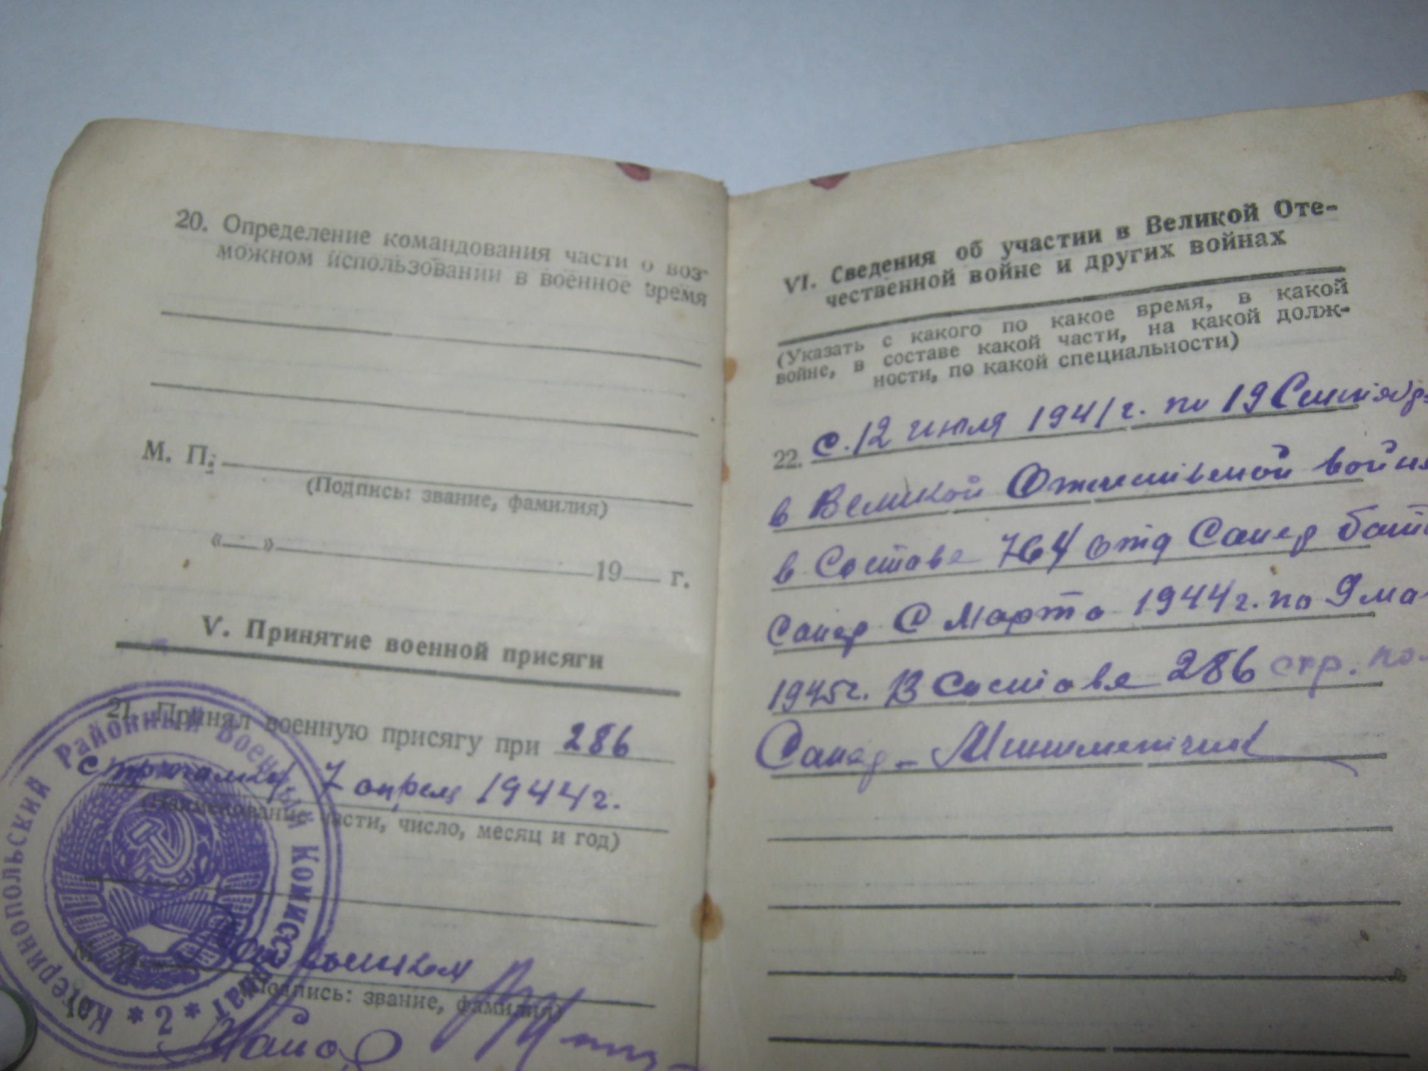 20. Определение командования части о воз-
можном использовании в военное время
М. П.
(Подпись: звание, фамилия)
« » 19 г.
V. Принятие военной присяги
21. Принял военную присягу при 286
7 апреля 1944г.
(Наименование части, число, месяц и год)
М. П.
(Подпись: звание, фамилия)
Майор
Катеринопольский Районный Военный Комиссариат * 2 *
VI. Сведения об участии в Великой Оте-
чественной войне и других войнах
(Указать с какого по какое время, в какой
войне, в составе какой части, на какой долж-
ности, по какой специальности)
22. С. 12 июля 1941г. по 19 Сентябр
в Великой Отечественной войн
в Составе 764 отд Сапер бат
Сапер С Марта 1944г. по 9 ма
1945г. В Составе 286 стр. по
Сапер -